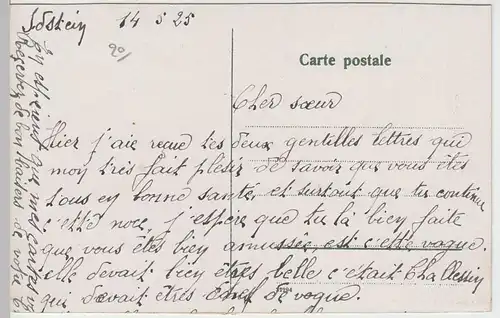 Idstein 14 5 25
20/
Carte postale
Cher sœur
Hier j'aie recue tes deux gentilles lettres que
moy très fait plésir de savoir que vous êtes
tous en bonne santé, et surtout que tu continue
c'esté noce, j'espère que tu là bien faite
que vous êtes bien amussée, est c'esté vogue.
elle devait bien êtres belle c'etait
qui devait êtres de vogue.
En espérant que mes cartes
Resevez de bon